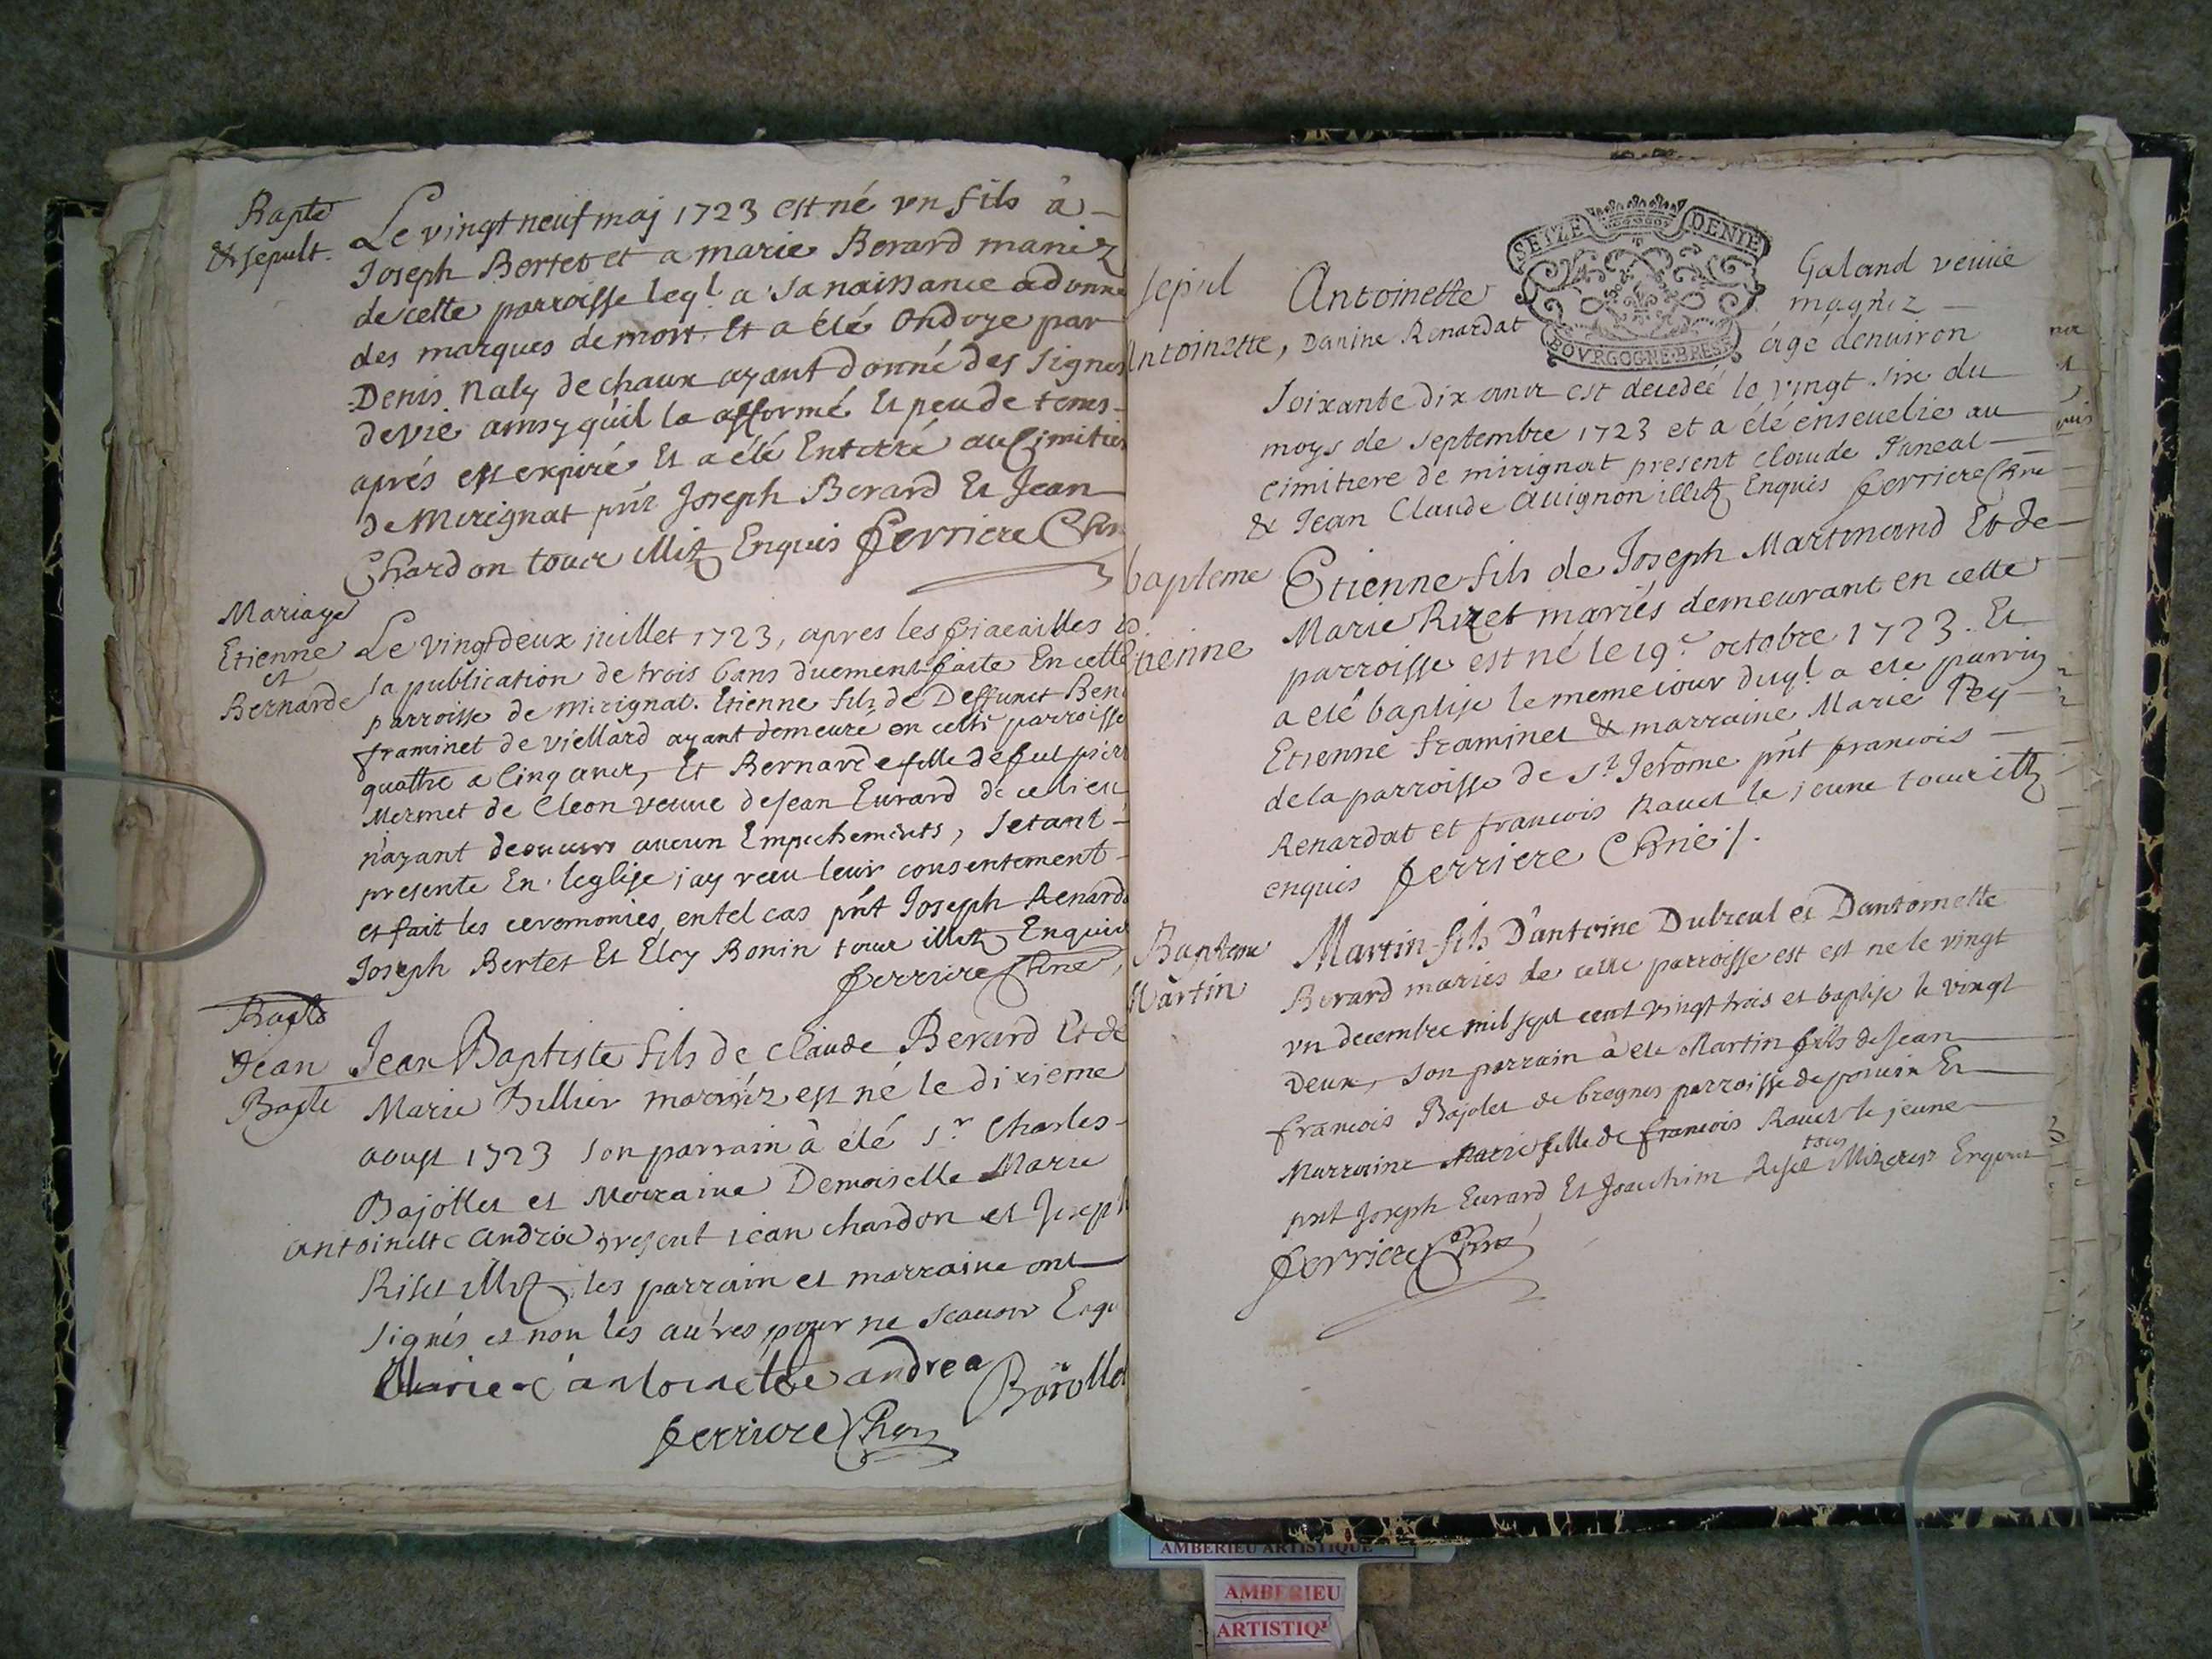 Bapte
& sepult.
Le vingt neuf maj 1723 est né vn fils à
Joseph Bertet et a marie Berard mariez
de cette parroisse leql a sa naissance a donné
des marques de mort. Et a été Ondoye par
Denis Naly de chaux ayant donné des signes
de vie ainsy quil la afformé Et peu de tems
aprés est expiré Et a été Enterré au Cimitier
de Mirignat pnt Joseph Berard Et Jean
Chardon tous illitz Enquis ferriere Cure
Mariage
Etienne
et
Bernarde
Le vingt deux juillet 1723, apres les fiacailles
la publication de trois bans duement faite En cette
parroisse de mirignat. Etienne fils de Deffunct Ben
framinet de viellard ayant demeuré en cette parroisse
quattre a Cinq ans, Et Bernarde fille de feu pier
Mermet de Cleon veuue de Jean Eurard de ce lieu
n'ayant aucun Empechements, Setant
presente En leglise j ay receu leur consentement
et fait les ceremonies en tel cas pnt Joseph Renard
Joseph Bertet Et Eloy Bonin tous illitz Enquis
ferriere Cure
Bapte
Jean
Bapte
Jean Baptiste fils de Claude Berard Et de
Marie Billier mariéz est né le dixieme
aoust 1723 son parrain à été Sr Charles
Bajollet et Marraine Demoiselle Marie
antoinette andrea present jean chardon et Joseph
Riset illitz les parrain et marraine ont
signés et non les autres pour ne scauoir Enqu
Marie antoinette andrea
Baiolle
ferriere Cure
SEIZE DENIE
BOVRGOGNE·BRESE
sepul
Antoinette,
Antoinette Galand veuue
Danine Renardat magniz
âgé denuiron
soixante dix ans est decedeé le vingt six du
moys de septembre 1723 et a été enseuelie au
cimitiere de mirignat present Claude
& Jean Claude Auignon illitz Enquis ferriere Cure
bapteme
Etienne
Etienne fils de Joseph Martinand Et de
Marie Rizet mariés demeurant en cette
parroisse est né le 19e octobre 1723. Et
a eté baptise le meme iour duql a ete parrin
Etienne framinet & marraine Marie Pey
de la parroisse de St Jerôme pnt francois
Renardat et francois Rauet le jeune tous illitz
enquis ferriere Cure
Bapteme
Martin
Martin fils Dantoine Dubreul et Dantoinette
Berard mariés de cette parroisse est est ne le vingt
vn decembre mil sept cent vingt trois et baptise le vingt
Deux, son parrain à ete Martin fils de Jean
francois Bajolet de bregnes parroisse de poncin Et
Marraine Marie fille de francois Rauet le jeune
pnt Joseph Eurard Et Joachim Riset tous illitz Enquis
ferriere Cure
AMBERIEU ARTISTIQUE
AMBERIEU
ARTISTIQU